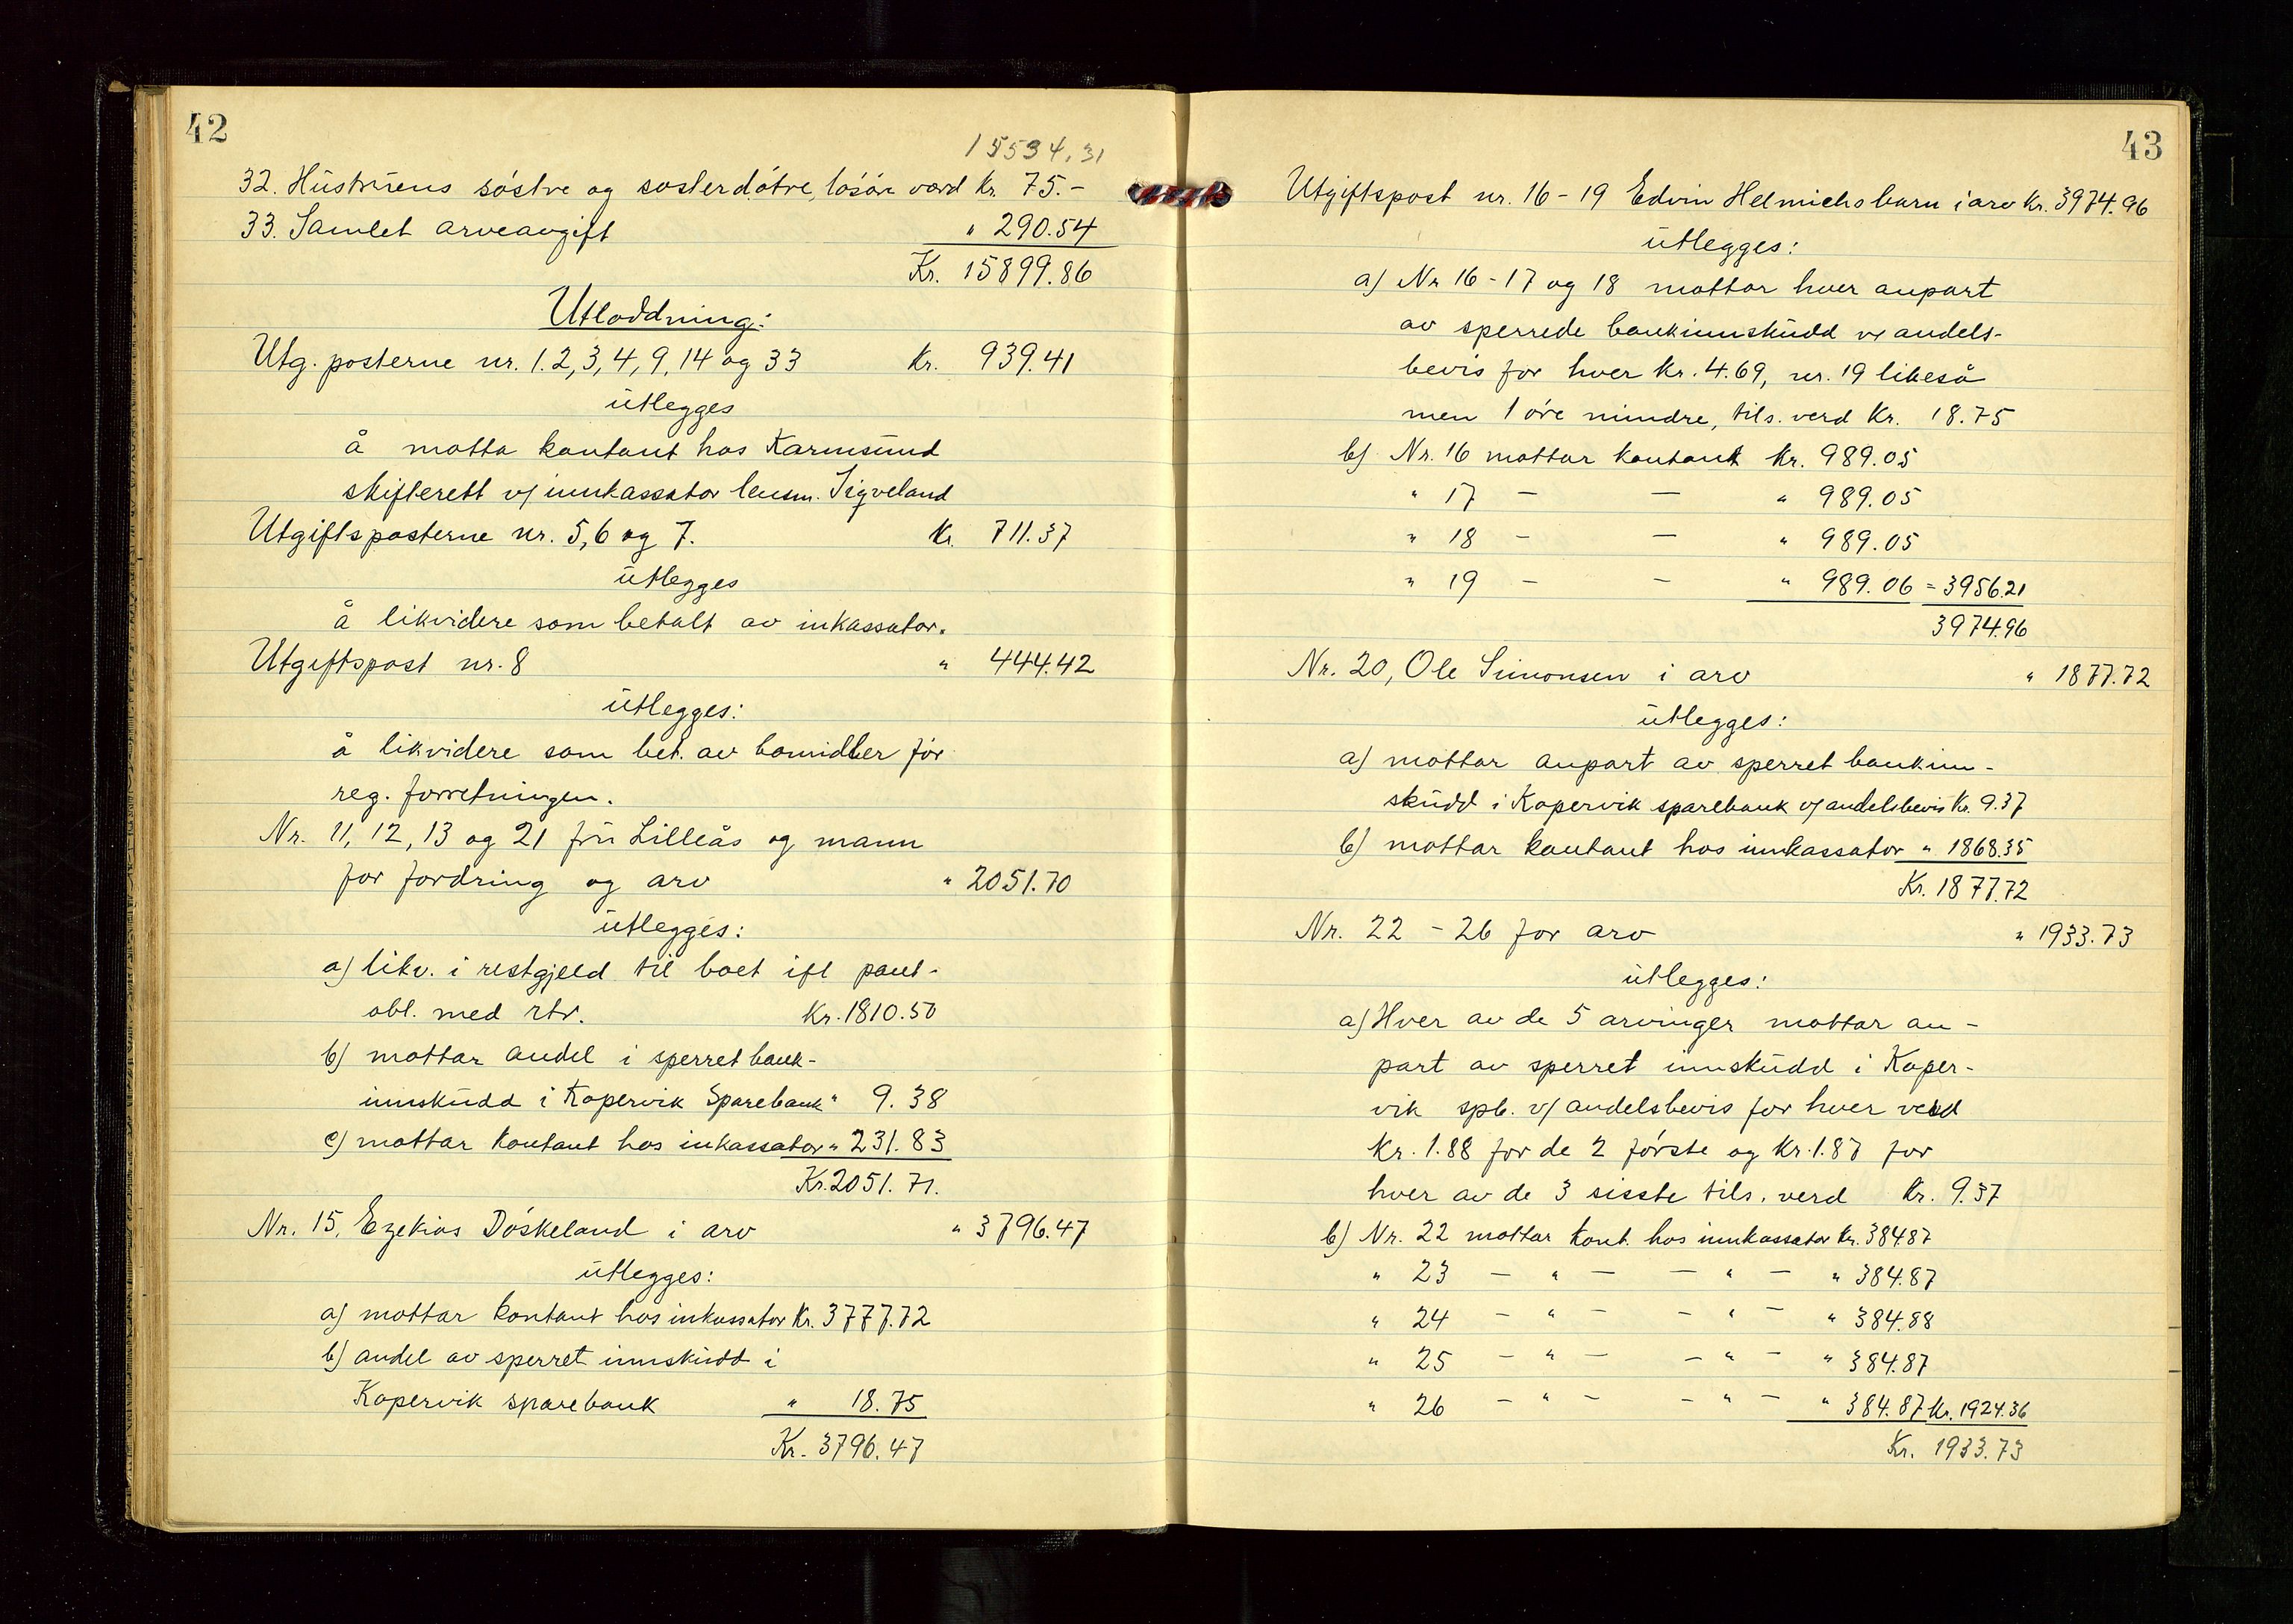 42
15534.31
32. Hustruens søstre og søsterdøtre, løsøre verd Kr. 75.-
33. Samlet arveavgift " 290.54
Kr. 15899.86
Utloddning:
Utg. posterne nr. 1. 2, 3, 4, 9, 14 og 33 Kr. 939.41
utlegges
å motta kontant hos Karmsund
skifterett v/ innkassator lensm. Sigveland
Utgiftsposterne nr. 5, 6 og 7. Kr. 711.37
utlegges
å likvidere som betalt av inkassator.
Utgiftspost nr. 8 " 444.42
utlegges:
å likvidere som bet. av bomidler før
reg. forretningen.
Nr. 11, 12, 13 og 21 fru Lilleås og mann
for fordring og arv " 2051.70
utlegges:
a) likv. i restgjeld til boet ifl pant-
obl. med rtr. Kr. 1810.50
b) mottar andel i sperret bank-
innskudd i Kopervik Sparebank " 9.38
c) mottar kontant hos inkassator " 231.83
Kr. 2051.71.
Nr. 15, Ezekias Døskeland i arv " 3796.47
utlegges:
a) mottar kontant hos inkassator Kr. 3777.72
b) andel av sperret innskudd i
Kopervik sparebank " 18.75
Kr. 3796.47
43
Utgiftspost nr. 16 - 19 Edvin Helmichs barn i arv Kr. 3974.96
utlegges:
a) Nr 16 - 17 og 18 mottar hver anpart
av sperrede bankinnskudd v/ andels-
bevis for hver Kr. 4.69, nr. 19 likeså
men 1 øre mindre, tils. verd Kr. 18.75
b) Nr. 16 mottar kontant Kr. 989.05
" 17 - - " 989.05
" 18 - - " 989.05
" 19 - - " 989.06 = 3956.21
3974.96
Nr. 20, Ole Simonsen i arv " 1877.72
utlegges:
a) mottar anpart av sperret bankinn-
skudd i Kopervik sparebank v/ andelsbevis Kr. 9.37
b) mottar kontant hos innkassator " 1868.35
Kr. 1877.72
Nr. 22 - 26 for arv " 1933.73
utlegges:
a) Hver av de 5 arvinger mottar an-
part av sperret innskudd i Koper-
vik spb. v/ andelsbevis for hver verd
Kr. 1.88 for de 2 første og Kr. 1.87 for
hver av de 3 sisste tils. verd Kr. 9.37
b) Nr. 22 mottar kont. hos innkassator Kr. 384.87
" 23 - " - - " - " 384.87
" 24 - " - - " - " 384.88
" 25 - " - - " - " 384.87
" 26 - " - - " - " 384.87 Kr. 1924.36
Kr. 1933.73